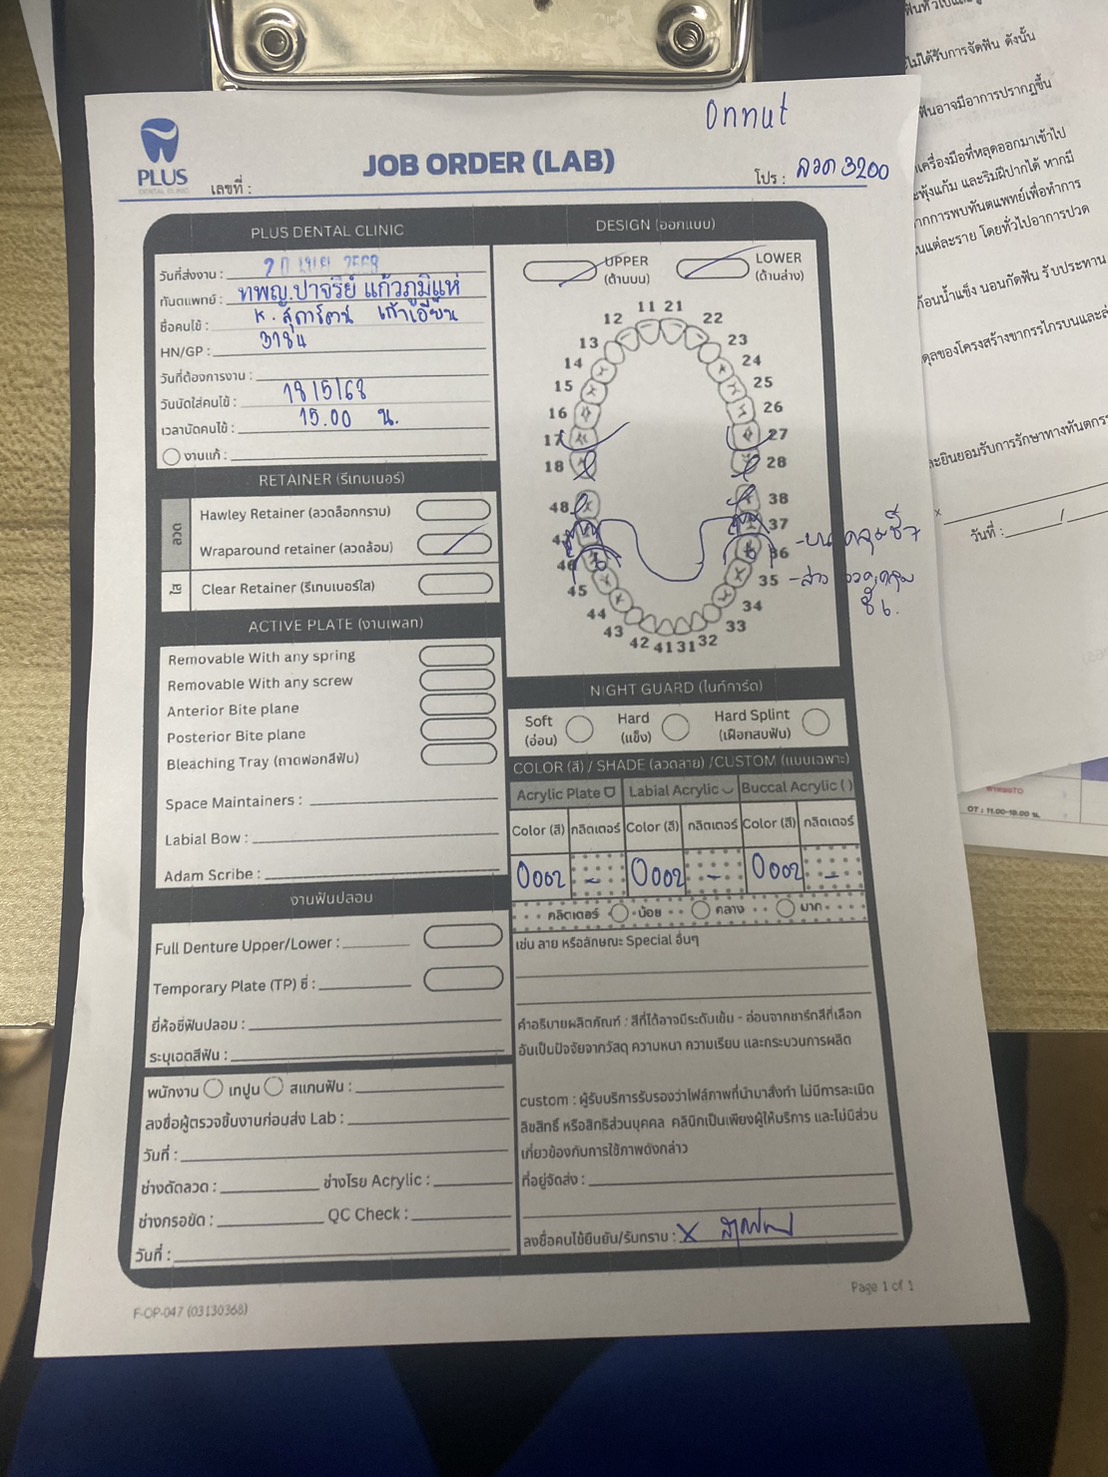 Onnut
PLUS
DENTAL CLINIC
เลขที่ :
JOB ORDER (LAB)
โปร : ลวด 3200
PLUS DENTAL CLINIC
วันที่ส่งงาน : 20 เม.ย. 2568
ทันตแพทย์ : ทพญ.ปาจรีย์ แก้วภูมิแห่
ชื่อคนไข้ : K. สุภารัตน์
HN/GP : 3184
วันที่ต้องการงาน :
วันนัดใส่คนไข้ : 18/5/68
เวลานัดคนไข้ : 15.00 น.
งานแก้ :
RETAINER (รีเทนเนอร์)
ลวด
Hawley Retainer (ลวดล็อกกราม)
Wraparound retainer (ลวดล้อม)
ใส
Clear Retainer (รีเทนเนอร์ใส)
ACTIVE PLATE (งานเพลท)
Removable With any spring
Removable With any screw
Anterior Bite plane
Posterior Bite plane
Bleaching Tray (ถาดฟอกสีฟัน)
Space Maintainers :
Labial Bow :
Adam Scribe :
งานฟันปลอม
Full Denture Upper/Lower :
Temporary Plate (TP) ซี่ :
ยี่ห้อซี่ฟันปลอม :
ระบุเฉดสีฟัน :
พนักงาน เทปูน สแกนฟัน :
ลงชื่อผู้ตรวจชิ้นงานก่อนส่ง Lab :
วันที่ :
ช่างดัดลวด : ช่างโรย Acrylic :
ช่างกรอขัด : QC Check :
วันที่ :
F-OP-047 (03130368)
DESIGN (ออกแบบ)
UPPER
(ด้านบน)
LOWER
(ด้านล่าง)
11 21
12 22
13 23
14 24
15 25
16 26
17 27
18 28
48 38
47 37
46 36
45 35
44 34
43 33
42 41 31 32
-บน คลุมซี่ 7
-ล่าง ลวดคลุม
ซี่ 6.
NIGHT GUARD (ไนท์การ์ด)
Soft
(อ่อน)
Hard
(แข็ง)
Hard Splint
(เฝือกสบฟัน)
COLOR (สี) / SHADE (ลวดลาย) /CUSTOM (แบบเฉพาะ)
Acrylic Plate Labial Acrylic Buccal Acrylic ( )
Color (สี) กลิตเตอร์ Color (สี) กลิตเตอร์ Color (สี) กลิตเตอร์
0002 - 0002 - 0002 -
กลิตเตอร์ น้อย กลาง มาก
เช่น ลาย หรือลักษณะ Special อื่นๆ
คำอธิบายผลิตภัณฑ์ : สีที่ได้อาจมีระดับเข้ม - อ่อนจากชาร์ทสีที่เลือก
อันเป็นปัจจัยจากวัสดุ ความหนา ความเรียบ และกระบวนการผลิต
custom : ผู้รับบริการรับรองว่าไฟล์ภาพที่นำมาสั่งทำ ไม่มีการละเมิด
ลิขสิทธิ์ หรือสิทธิส่วนบุคคล คลินิกเป็นเพียงผู้ให้บริการ และไม่มีส่วน
เกี่ยวข้องกับการใช้ภาพดังกล่าว
ที่อยู่จัดส่ง :
ลงชื่อคนไข้ยืนยัน/รับทราบ : X
Page 1 of 1
ไม่ได้รับการจัดฟัน ดังนั้น
ฟันอาจมีอาการปรากฏขึ้น
เครื่องมือที่หลุดออกมาเข้าไป
ะพุ้งแก้ม และริมฝีปากได้ หากมี
ากการพบทันตแพทย์เพื่อทำการ
นแต่ละราย โดยทั่วไปอาการปวด
ก้อนน้ำแข็ง นอนกัดฟัน รับประทาน
ดุลของโครงสร้างขากรรไกรบนและ
ละยินยอมรับการรักษาทางทันตกร
x
วันที่ : / /
OT : 11.00-19.00 น.